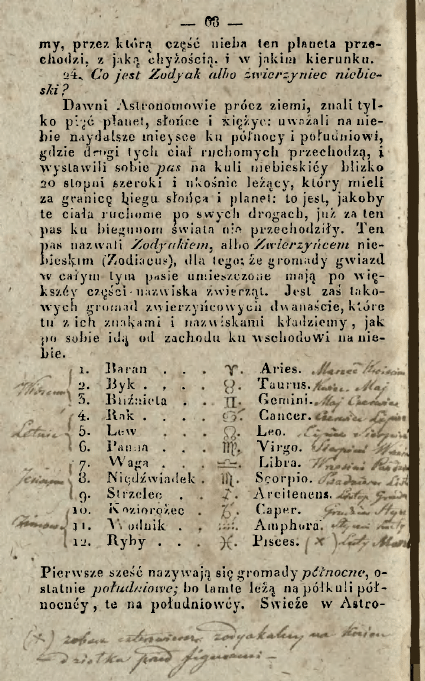 — 63 —
my, przez którą część nieba ten planeta prze-
chodzi, z jaką chyżością, i w jakim kierunku.
24. Co jest Zodyak albo zwierzyniec niebie-
ski?
Dawni Astronomowie prócz ziemi, znali tyl-
ko pięć planet, słońce i xiężyc: uważali na nie-
bie naydalsze mieysce ku północy i południowi,
gdzie drogi tych ciał ruchomych przechodzą, i
wystawili sobie pas na kuli niebieskiéy blizko
20 stopni szeroki i ukośnie leżący, który mieli
za granicę biegu słońca i planet: to jest, jakoby
te ciała ruchome po swych drogach, już za ten
pas ku biegunom świata nie przechodziły. Ten
pas nazwali Zodyakiem, albo Zwierzyńcem nie-
bieskim (Zodiacus), dla tego: że gromady gwiazd
w całym tym pasie umieszczone mają po wię-
kszéy części nazwiska zwierząt. Jest zaś tako-
wych gromad zwierzyńcowych dwanaście, które
tu z ich znakami i nazwiskami kładziemy, jak
po sobie idą od zachodu ku wschodowi na nie-
bie.
1. Baran . . . ♈. Aries.
2. Byk . . . . ♉. Taurus. Maj
3. Bliźnięta . . ♊. Gemini. Maj Czerwiec
4. Rak . . . . ♋. Cancer. Czerwiec Lipiec
5. Lew . . . . ♌. Leo.
6. Panna . . . ♍. Virgo.
7. Waga . . . ♎. Libra.
8. Niedźwiadek . ♏. Scorpio.
9. Strzelec . . ♐. Arcitenens.
10. Koziorożec . ♑. Caper.
11. Wodnik . . ♒. Amphora.
12. Ryby . . . ♓. Pisces. (x)
Pierwsze sześć nazywają się gromady północne, o-
statnie południowe; bo tamte leżą na półkuli pół-
nocnéy, te na południowéy. Świeże w Astro-
(x) zodyakalny na